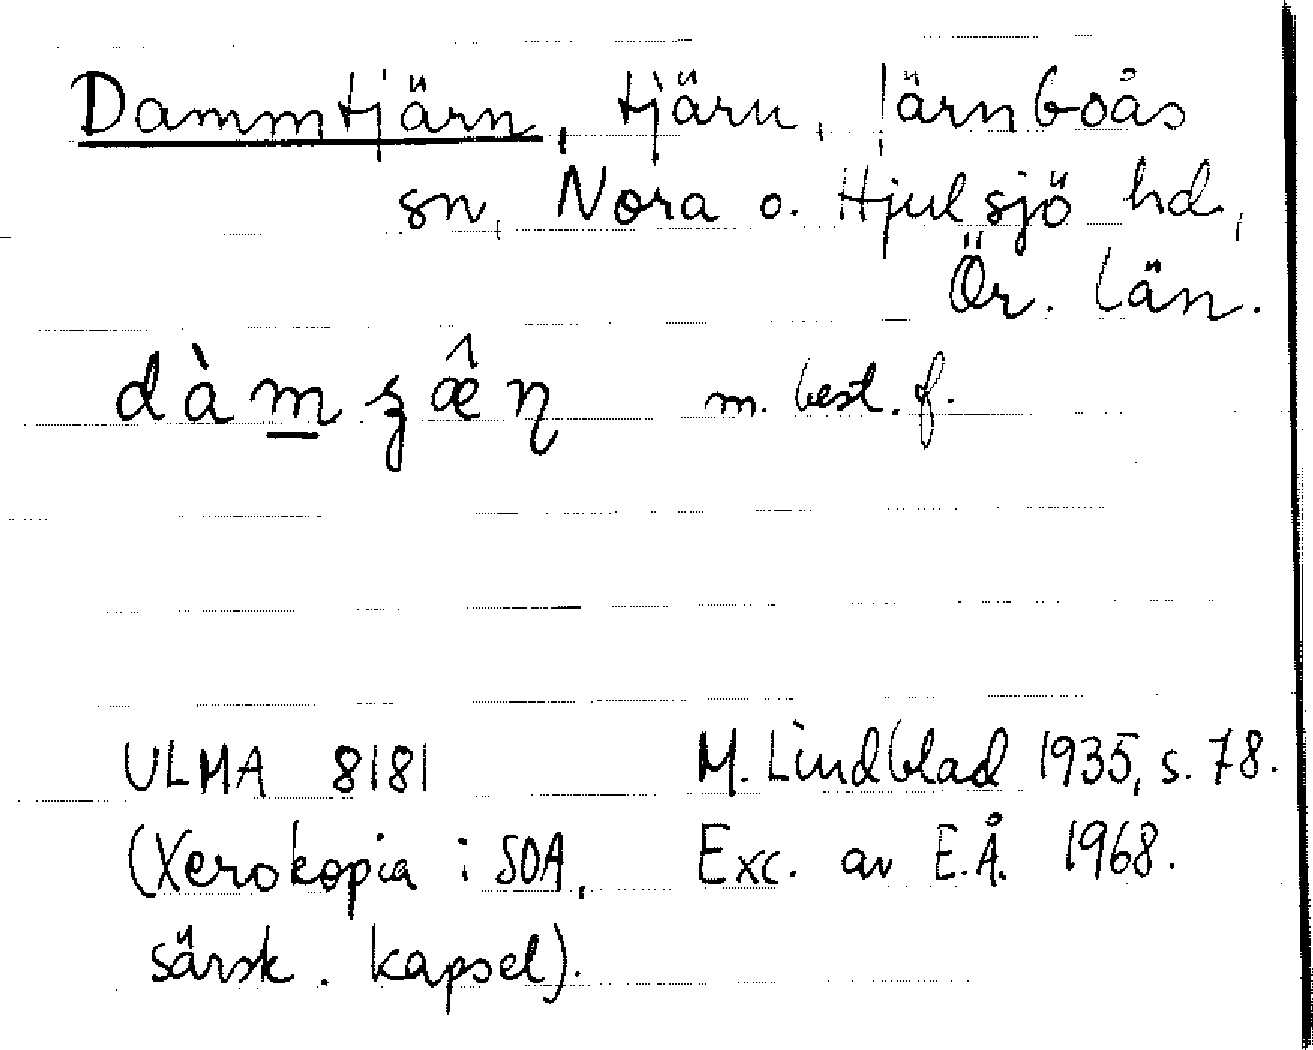 Dammtjärn, tjärn, Järnboås
sn, Nora o. Hjulsjö hd,
Ör. län.
dàm̲ʒæ̂ɳ m. best. f.
ULMA 8181 M. Lindblad 1935, s. 78.
(Xerokopia i SOA, Exc. av E.Å. 1968.
särsk. kapsel).